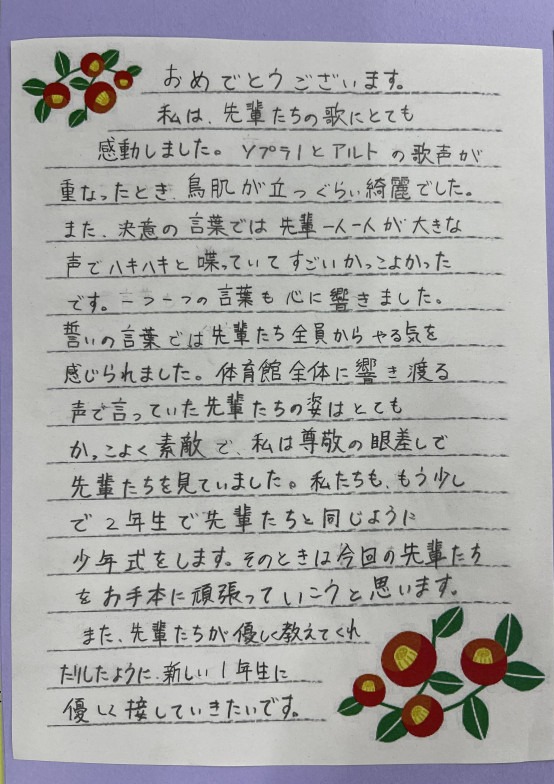 おめでとうございます。
私は、先輩たちの歌にとても
感動しました。ソプラノとアルトの歌声が
重なったとき、鳥肌が立つぐらい綺麗でした。
また、決意の言葉では先輩一人一人が大きな
声でハキハキと喋っていてすごいかっこよかった
です。一つ一つの言葉も心に響きました。
誓いの言葉では先輩たち全員からやる気を
感じられました。体育館全体に響き渡る
声で言っていた先輩たちの姿はとても
かっこよく素敵で、私は尊敬の眼差しで
先輩たちを見ていました。私たちも、もう少し
で2年生で先輩たちと同じように
少年式をします。そのときは今回の先輩たち
をお手本に頑張っていこうと思います。
また、先輩たちが優しく教えてくれ
たりしたように、新しい1年生に
優しく接していきたいです。